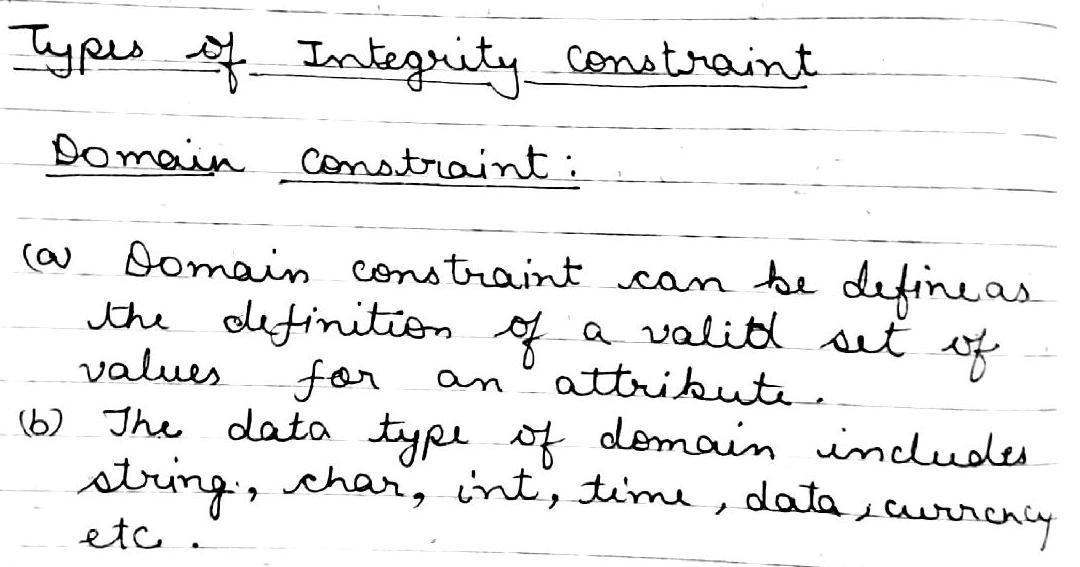 Types of Integrity constraint
Domain constraint :
(a) Domain constraint can be define as
the definition of a valid set of
values for an attribute .
(b) The data type of domain includes
string , char, int, time , data , currency
etc .